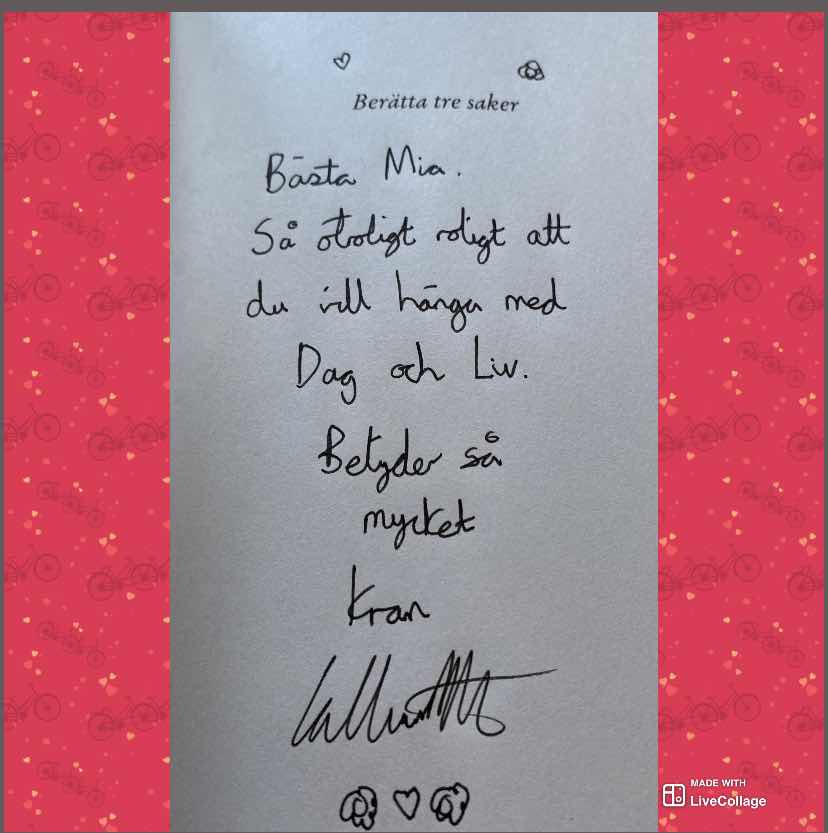 Berätta tre saker
Bästa Mia.
Så otroligt roligt att
du vill hänga med
Dag och Liv.
Betyder så
mycket
Kram
MADE WITH
LiveCollage